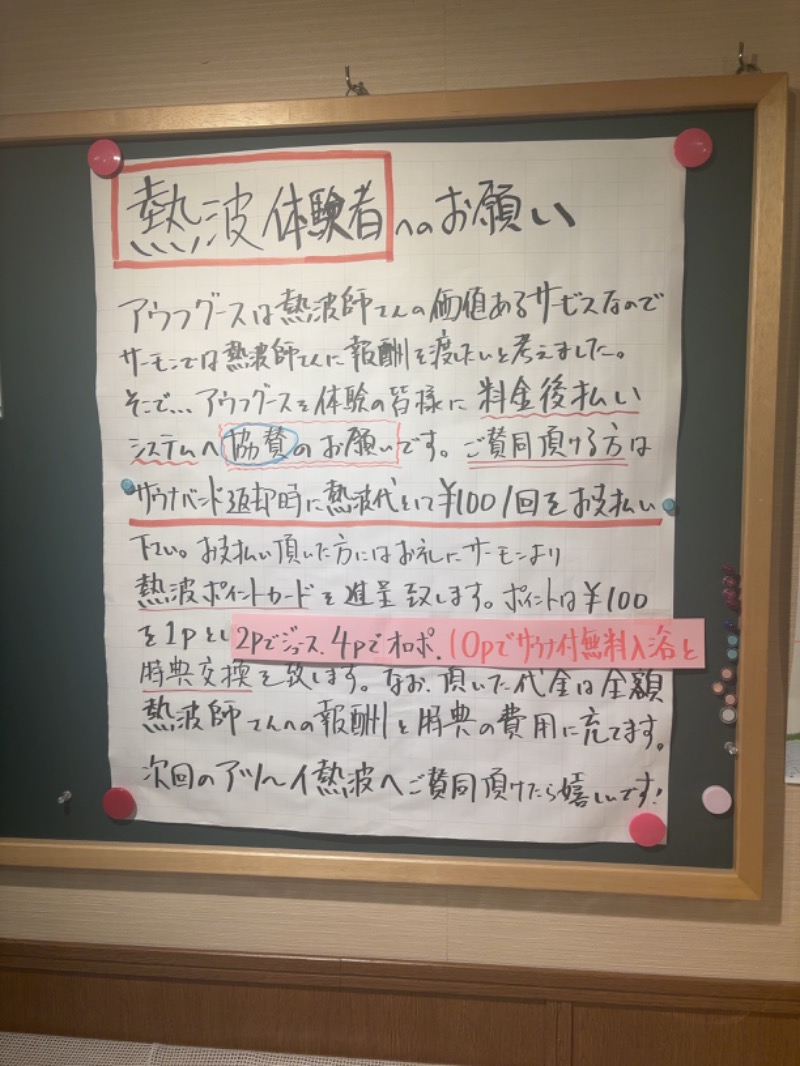 熱波体験者へのお願い
アウフグースは熱波師さんの価値あるサービスなので
サーモンでは熱波師さんに報酬を渡したいと考えました。
そこで…アウフグースを体験の皆様に料金後払い
システムへ協賛のお願いです。ご賛同頂ける方は
サウナバンド返却時に熱波代として¥100/回をお支払い
下さい。お支払い頂いた方にはお礼にサーモンより
熱波ポイントカードを進呈致します。ポイントは¥100
を1pとし2pでジュース、4pでオロポ、10pでサウナ付無料入浴と
特典交換を致します。なお、頂いた代金は全額
熱波師さんへの報酬と特典の費用に充てます。
次回のアツーイ熱波へご賛同頂けたら嬉しいです!